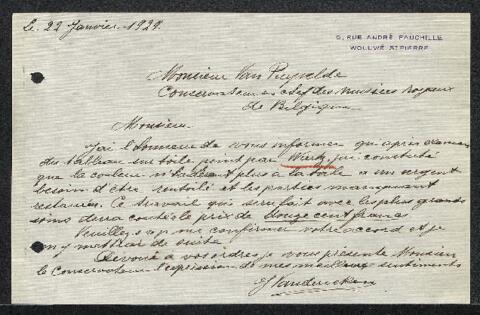 le 22 Janvier 1929.
5, RUE ANDRÉ FAUCHILLE
WOLUWÉ ST PIERRE
Monsieur Van Puyvelde
Conservateur en chef des musées royaux
de Belgique
Monsieur
J'ai l'honneur de vous informer qu'après examen
du tableau sur toile peint par Wiertz, j'ai constaté
que la couleur n'adhérant plus à la toile a un urgent
besoin d'être rentoilé et les parties manquant
restaurées. Ce travail qui sera fait avec les plus grands
soins devra coûter le prix de douze cent francs
Veuillez s v p me confirmer votre accord et je
m'y mettrai de suite.
Dévoué à vos ordres je vous présente Monsieur
le conservateur l'expression de mes meilleurs sentiments
J Vanderveken